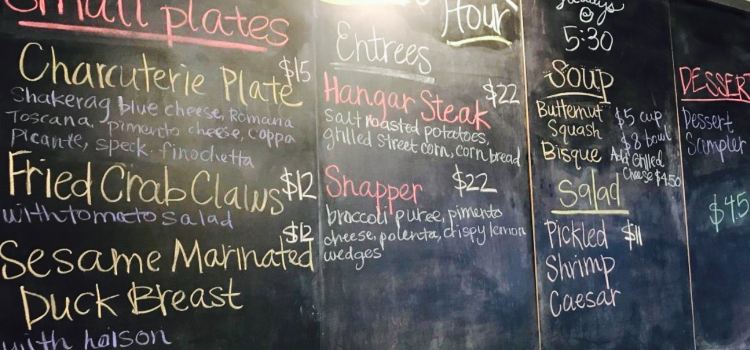 Small plates
Charcuterie Plate $15
Shakerag blue cheese, Romana
Toscana, pimento cheese, coppa
Picante, speck, finochetta
Fried Crab Claws $12
with tomato salad
$12
Sesame Marinated
Duck Breast
with hoison
Hour
Entrees
Hangar Steak $22
salt roasted potatoes,
grilled street corn, corn bread
Snapper $22
broccoli puree, pimento
cheese, polenta, crispy lemon
wedges
@
5:30
Soup
Butternut $5 cup
Squash $8 bowl
Bisque Add Grilled
Cheese $4.50
Salad
Pickled $11
Shrimp
Caesar
DESSER
Dessert
Sampler
$45